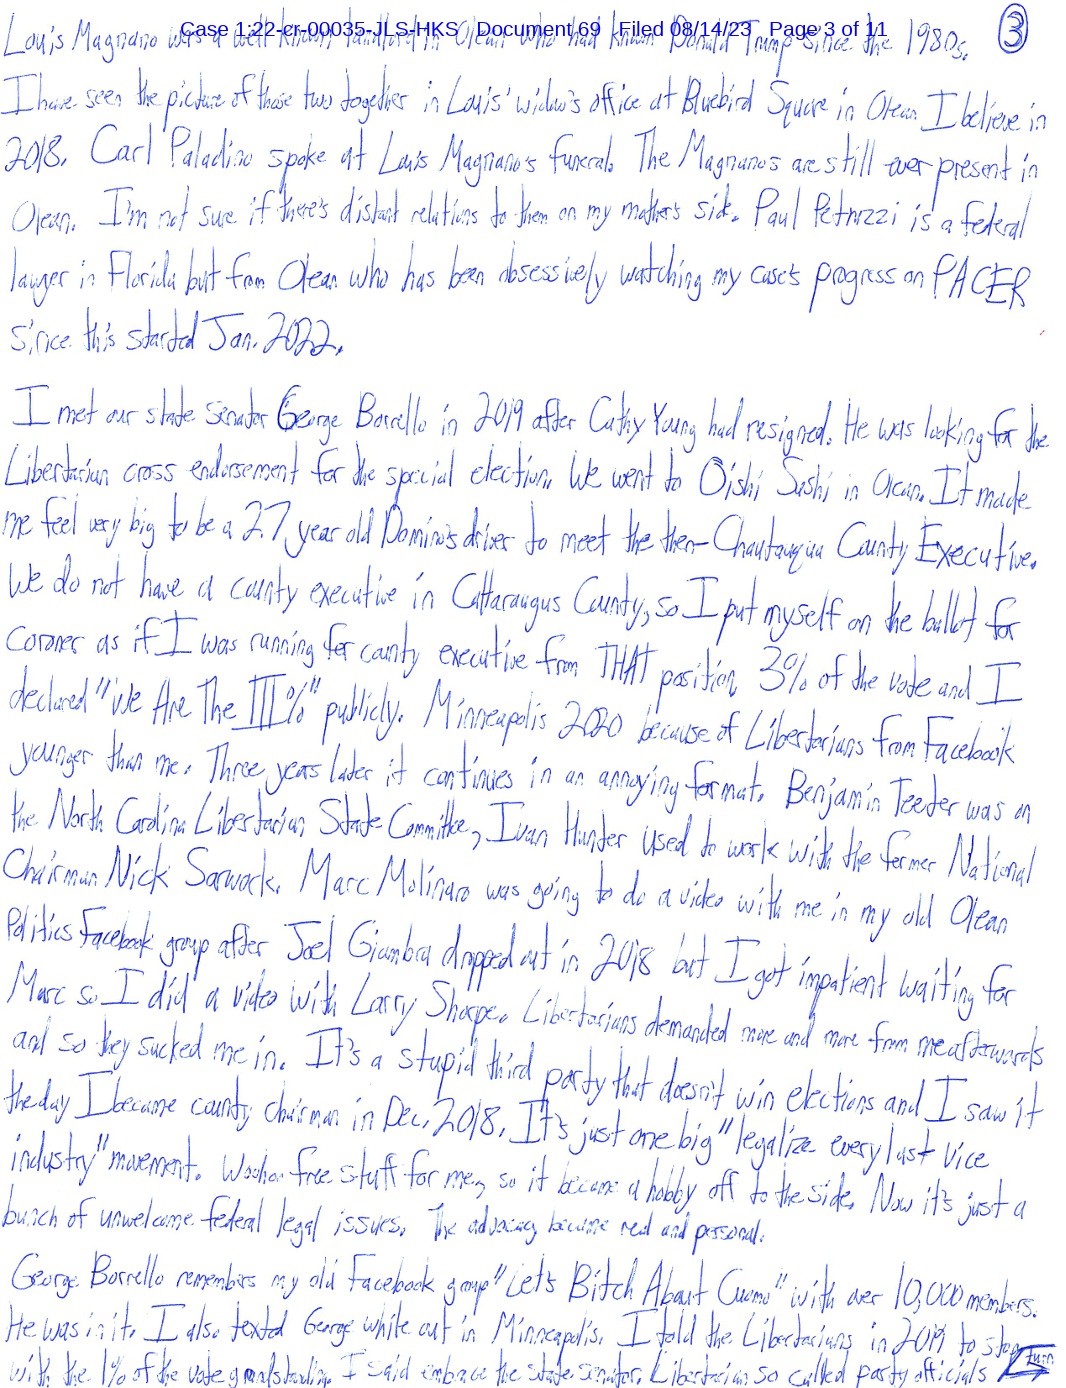 Case 1:22-cr-00035-JLS-HKS Document 69 Filed 08/14/23 Page 3 of 11
3
Louis Magnano was a well known landlord in Olean who had known Donald Trump since the 1980s.
I have seen the picture of those two together in Louis' widow's office at Bluebird Square in Olean I believe in
2018. Carl Paladino spoke at Louis Magnano's funeral. The Magnanos are still ever present in
Olean. I'm not sure if there's distant relations to them on my mother's side. Paul Petruzzi is a federal
lawyer in Florida but from Olean who has been obsessively watching my case's progress on PACER
since this started Jan. 2022.
I met our state senator George Borrello in 2019 after Cathy Young had resigned. He was looking for the
Libertarian cross endorsement for the special election. We went to Oishi Sushi in Olean. It made
me feel very big to be a 27 year old Domino's driver to meet the then-Chautauqua County Executive.
We do not have a county executive in Cattaraugus County, so I put myself on the ballot for
coroner as if I was running for county executive from THAT position. 3% of the vote and I
declared "We Are The III%" publicly. Minneapolis 2020 because of Libertarians from Facebook
younger than me. Three years later it continues in an annoying format. Benjamin Teeter was on
the North Carolina Libertarian State Committee, Ivan Hunter used to work with the former National
Chairman Nick Sarwark. Marc Molinaro was going to do a video with me in my old Olean
Politics Facebook group after Joel Giambra dropped out in 2018 but I got impatient waiting for
Marc so I did a video with Larry Sharpe. Libertarians demanded more and more from me afterwards
and so they sucked me in. It's a stupid third party that doesn't win elections and I saw it
the day I became county chairman in Dec. 2018. It's just one big "legalize every last vice
industry" movement. Woohoo free stuff for me, so it became a hobby off to the side. Now it's just a
bunch of unwelcome federal legal issues. The advocacy became real and personal.
George Borrello remembers my old Facebook group "Let's Bitch About Cuomo" with over 10,000 members.
He was in it. I also texted George while out in Minneapolis. I told the Libertarians in 2019 to stop
with the 1% of the vote grandstanding. I said embrace the state senator. Libertarian so called party officials turn